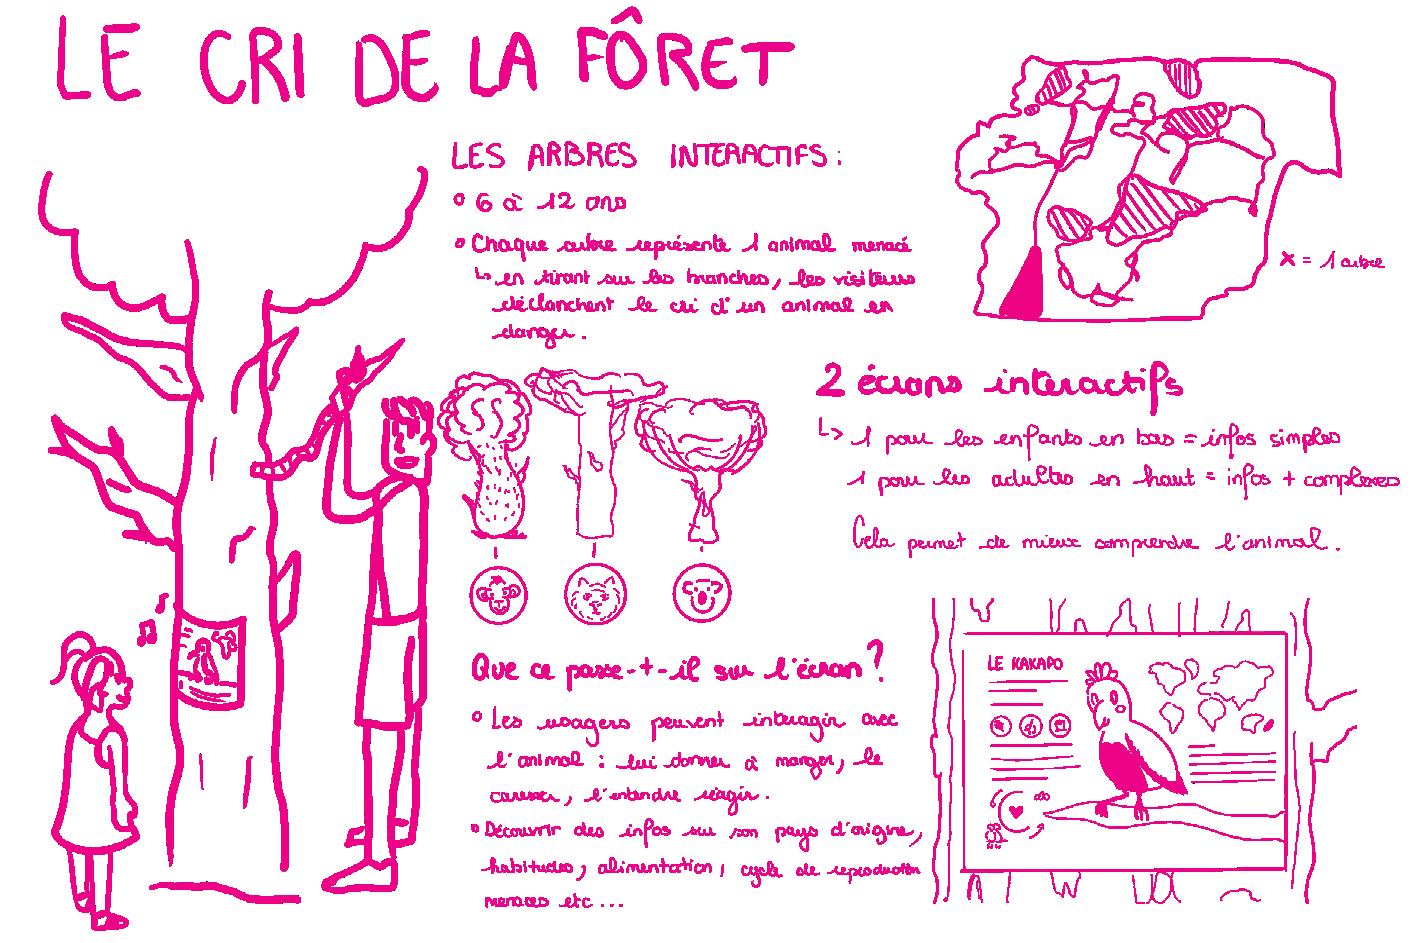 LE CRI DE LA FÔRET
LES ARBRES INTERACTIFS :
° 6 à 12 ans
° Chaque arbre représente 1 animal menacé
↳ en tirant sur les branches, les visiteurs
déclanchent le cri d'un animal en
danger.
x = 1 arbre
2 écrans interactifs
↳ 1 pour les enfants en bas = infos simples
1 pour les adultes en haut = infos + complexes
Cela permet de mieux comprendre l'animal.
Que ce passe-t-il sur l'écran ?
° Les usagers peuvent interagir avec
l'animal : lui donner à manger, le
caresser, l'entendre réagir.
° Découvrir des infos sur son pays d'origine,
habitudes, alimentation, cycle de reproduction
menaces etc ...
LE KAKAPO